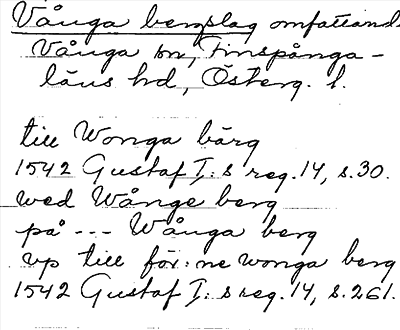 Vånga bergslag omfattand.
Vånga sn, Finspånga-
läns hd, Österg. l.
till Wonga bärg
1542 Gustaf I:s reg. 14, s. 30.
wed Wånge berg
på --- Wånga berg
vp till för:ne wonga berg
1542 Gustaf I:s reg. 14, s. 261.